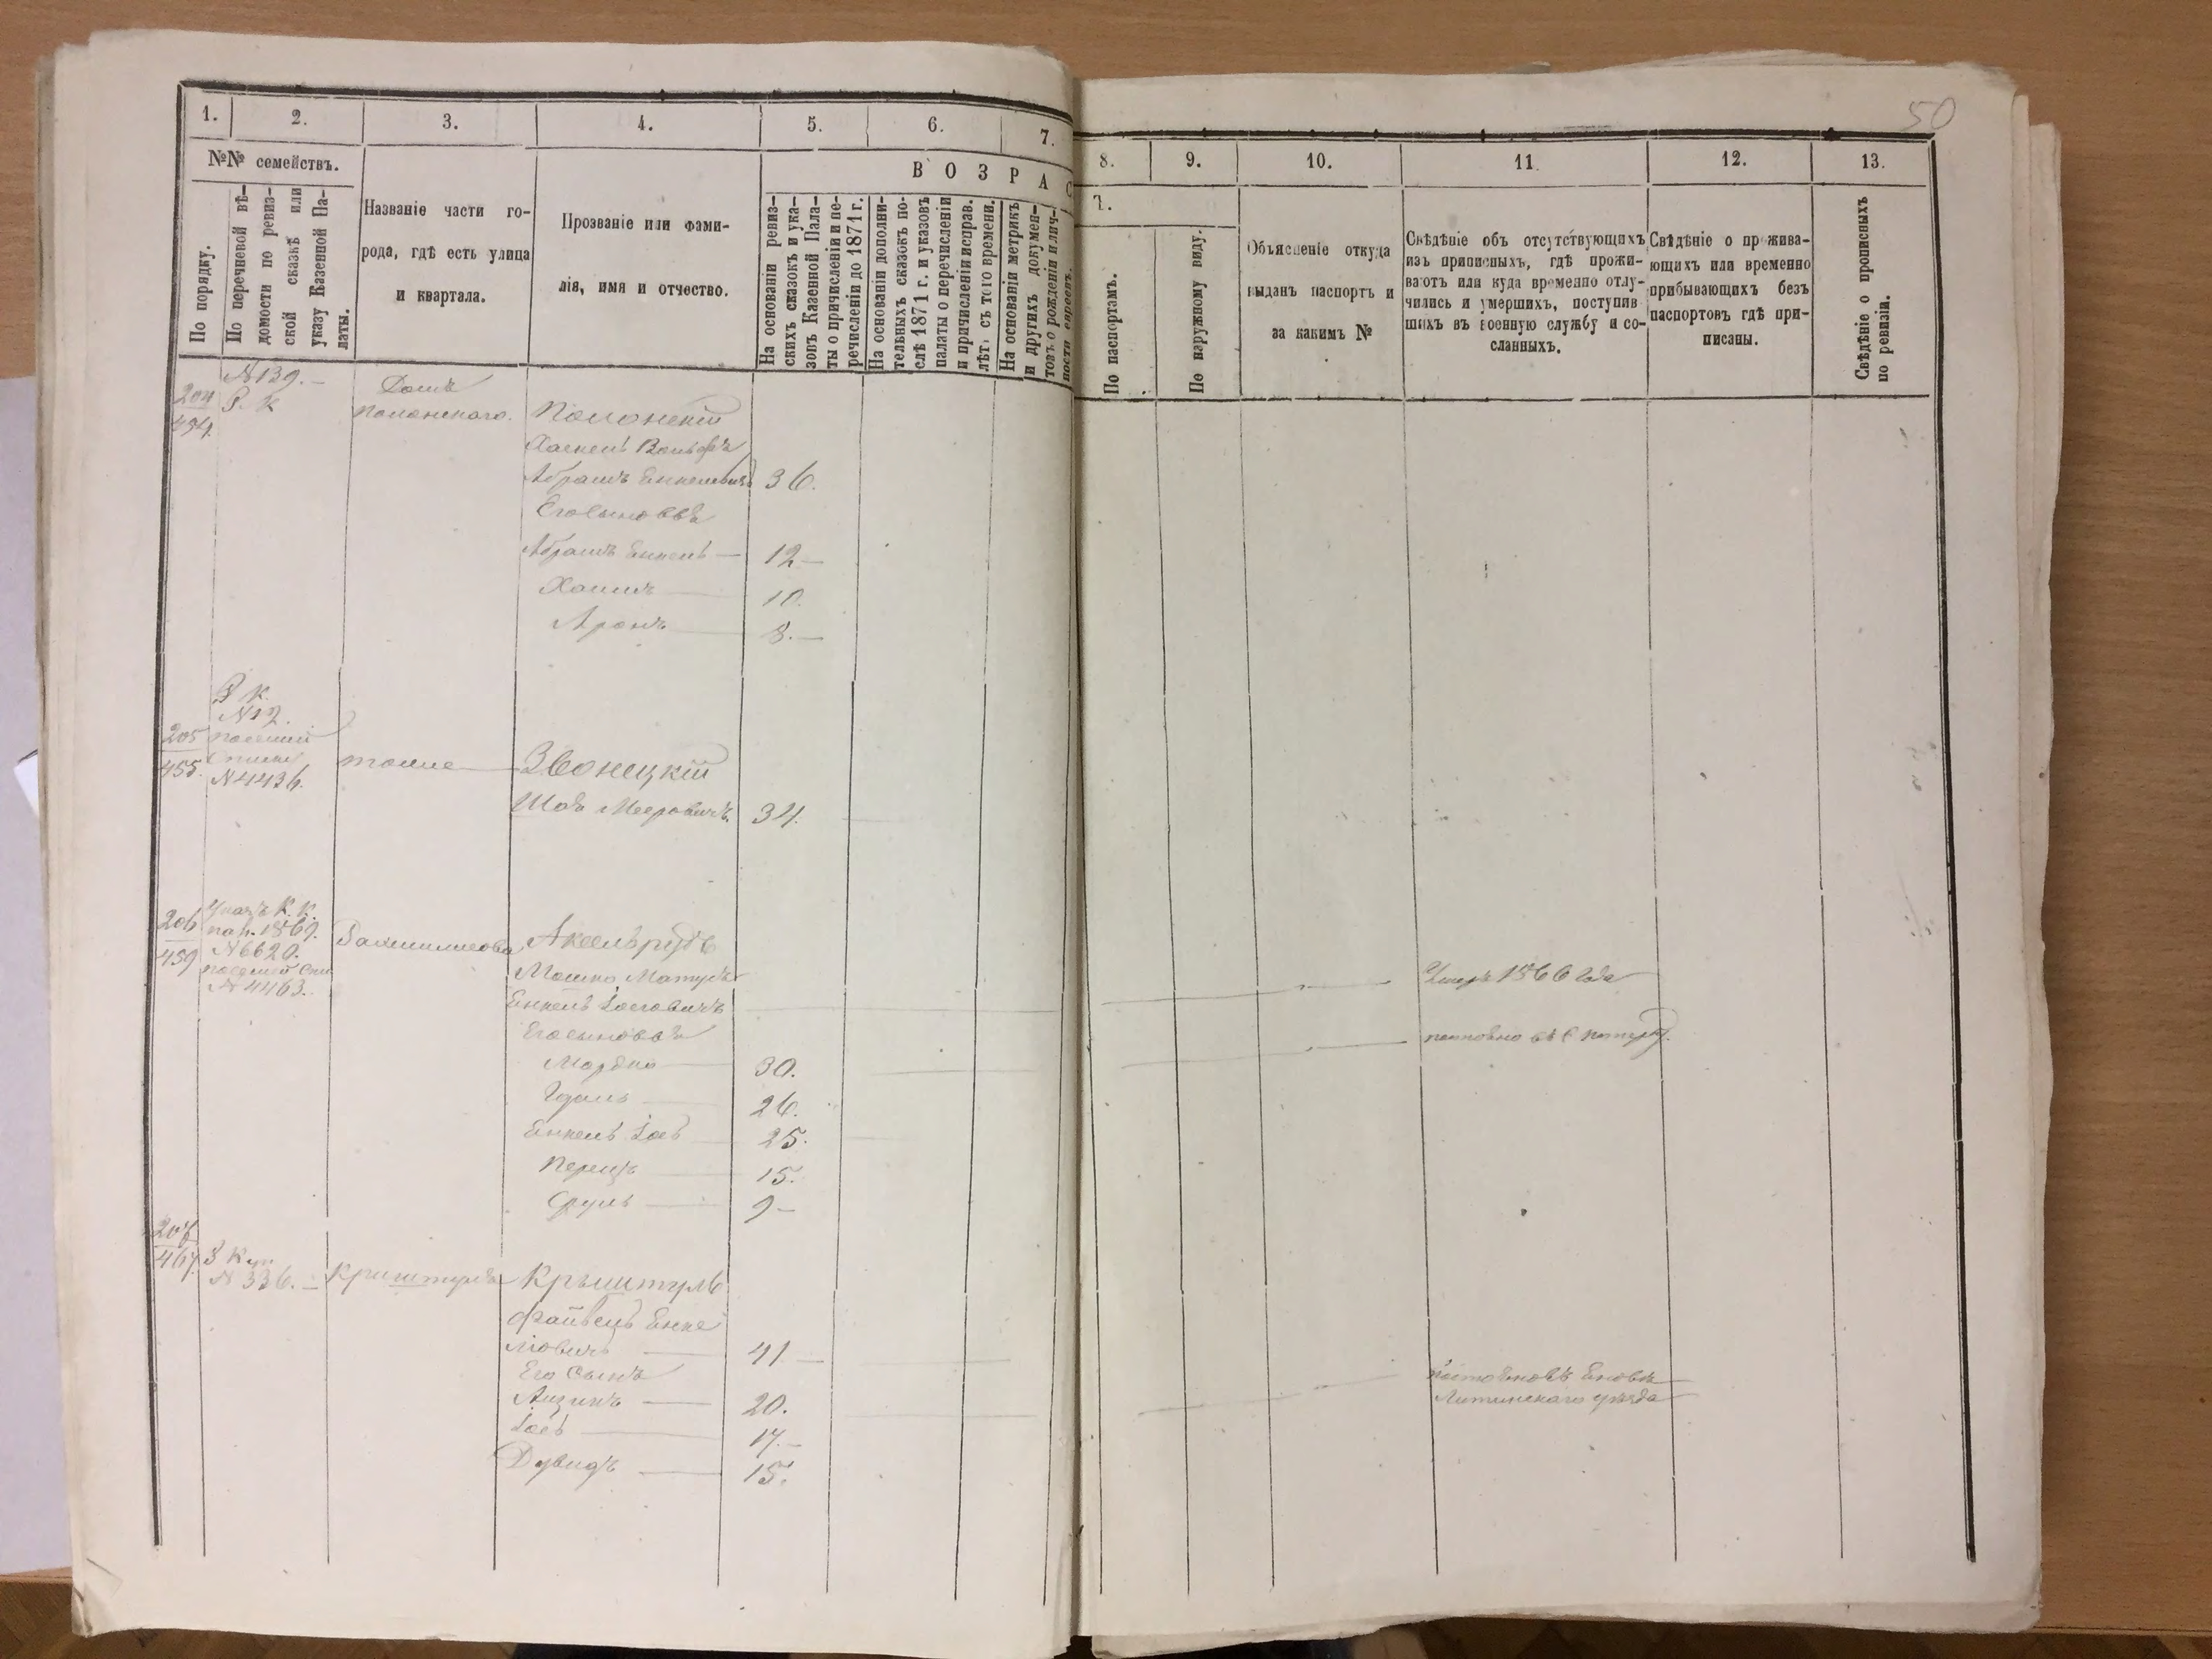 50
1. 2. 3. 4. 5. 6. 7.
8. 9. 10. 11 12. 13.
№№ семействъ.
В О З Р А С
Т.
По порядку.
По перечневой вѣ-
домости по ревиз-
ской сказкѣ или
указу Казенной Па-
латы.
Названіе части го-
рода, гдѣ есть улица
и квартала.
Прозваніе или фами-
лія, имя и отчество.
На основаніи ревиз-
скихъ сказокъ и ука-
зовъ Казенной Пала-
ты о причисленіи и пе-
речисленіи до 1871 г.
На основаніи дополни-
тельныхъ сказокъ по-
слѣ 1871 г. и указовъ
палаты о перечисленіи
и причисленіи исправ.
лѣтъ съ того времени.
На основаніи метрикъ
и другихъ докумен-
товъ о рожденіи и лич-
ности евреевъ.
По паспортамъ.
По наружному виду.
Объясненіе откуда
выданъ паспортъ и
за какимъ №
Свѣдѣніе объ отсутствующихъ
изъ приписныхъ, гдѣ прожи-
ваютъ или куда временно отлу-
чились и умершихъ, поступив
шихъ въ военную службу и со-
сланныхъ.
Свѣдѣніе о прожива-
ющихъ или временно
прибывающихъ безъ
паспортовъ гдѣ при-
писаны.
Свѣдѣніе о прописныхъ
по ревизіи.
204
454.
N 139. –
Р. К
Домъ
Полонскаго.
Полонскій
Хаскель Вольфъ
Абрамъ Енкелевичъ 36.
Его сыновья
Абрамъ Енкель — 12 –
Хаимъ — 10.
Аронъ — 8. –
205
455.
К.
N 12.
N 4436.
тоже — Звонецкій
Шая Мееровичъ. 34.
206
459
Указъ К. К.
пал. 1869.
N 6620.
N 4463.
Аксельрудъ
Мошко Матусъ
Енкель Іосіовичъ
Умеръ 1866 года
Его сыновья
Мордко — 30.
Идель — 26.
Енкель Іось — 25.
Перецъ — 15.
Сруль — 9 –
207
467.
3 Куп
N 336. –
Криштуль
Крыштуль
Файвель Енке
ліовичъ — 41 –
Его Сынъ
Аизикъ — 20.
Іось — 17. –
Дувидъ — 15.
Литинскаго уѣзда